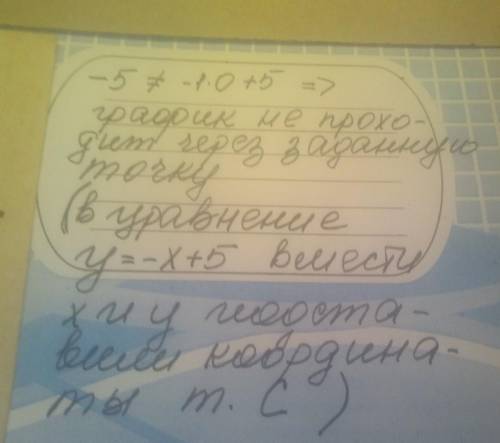 -5 ≠ -1·0+5 =>
график не прохо-
дит через заданную
точку
(в уравнение
y=-x+5 вместо
x и y подста-
вили координа-
ты т. C)